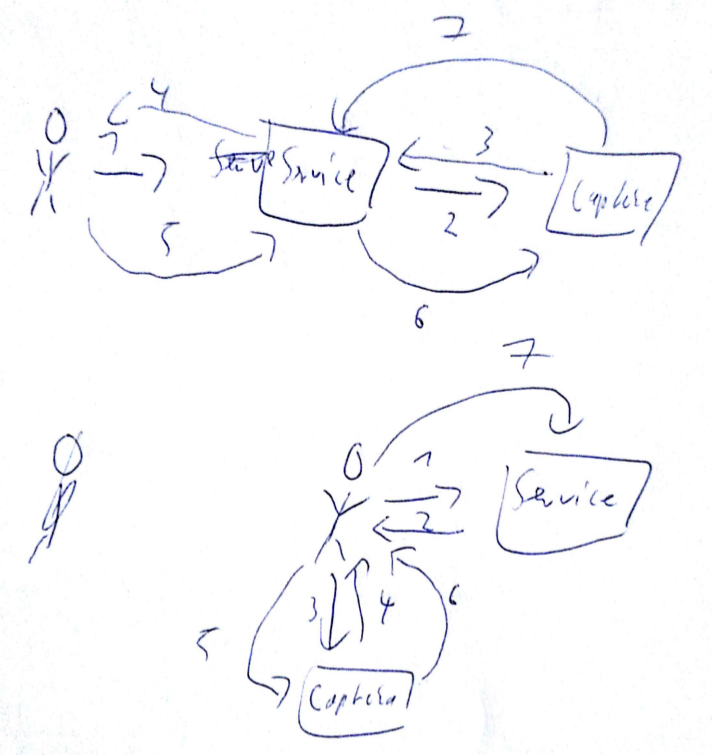 7
4
1
3
Service
Captcha
2
5
6
7
1
Service
2
3
4
6
5
Captcha